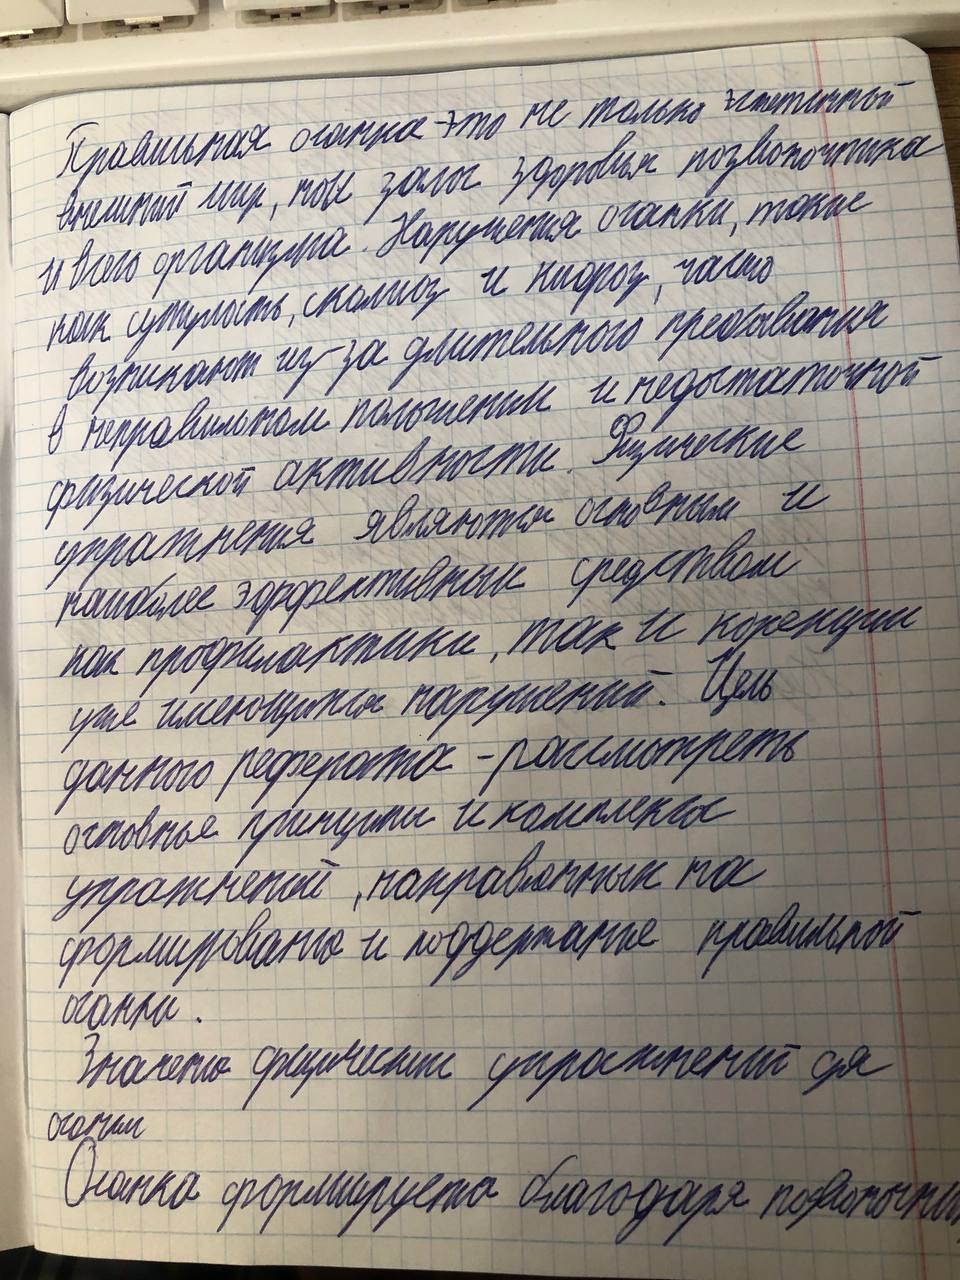 Правильная осанка-это не только эстетичный
внешний мир, но и залог здоровья позвоночника
и всего организма. Нарушения осанки, такие
как сутулость, сколиоз и кифоз, часто
возникают из-за длительного пребывания
в неправильном положении и недостаточной
физической активности. Физические
упражнения являются основным и
наиболее эффективным средством
как профилактики, так и корекции
уже имеющихся нарушений. Цель
данного реферата - рассмотреть
основные принципы и комплексы
упражнений, направленных на
формирование и поддержание правильной
осанки.
Значение физических упражнений для
осанки
Осанка формируется благодаря